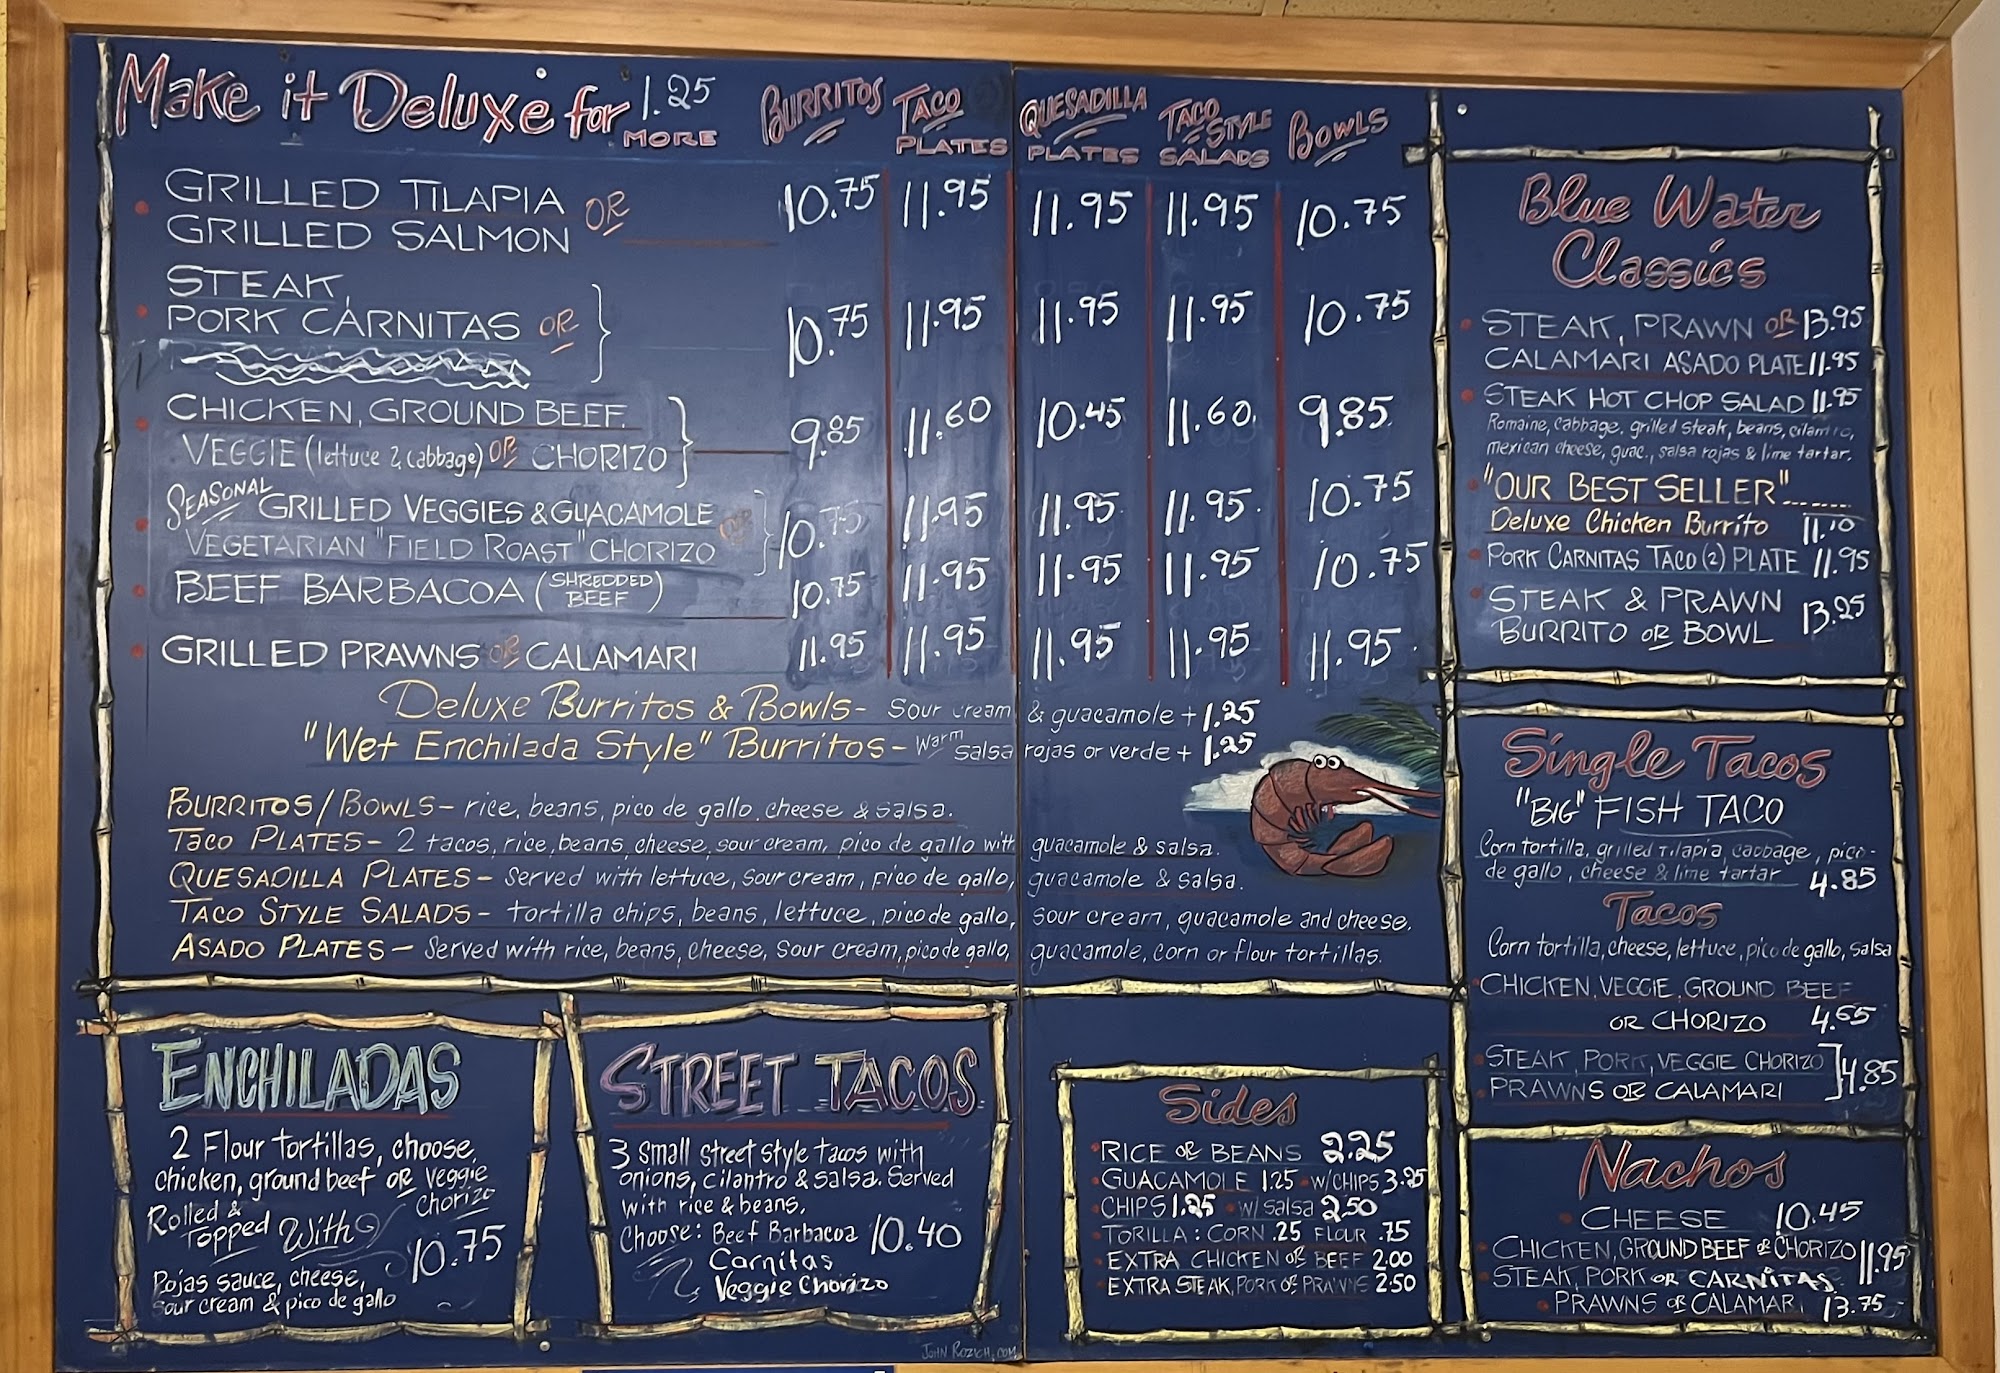 Make it Deluxe for 1.25 MORE
BURRITOS TACO PLATES QUESADILLA PLATES TACO STYLE SALADS BOWLS
GRILLED TILAPIA OR
GRILLED SALMON 10.75 11.95 11.95 11.95 10.75
STEAK,
PORK CARNITAS OR 10.75 11.95 11.95 11.95 10.75
CHICKEN, GROUND BEEF.
VEGGIE (lettuce & cabbage) OR CHORIZO 9.85 11.60 10.45 11.60 9.85
SEASONAL GRILLED VEGGIES & GUACAMOLE OR
VEGETARIAN "FIELD ROAST" CHORIZO 10.75 11.95 11.95 11.95 10.75
BEEF BARBACOA (SHREDDED BEEF) 10.75 11.95 11.95 11.95 10.75
GRILLED PRAWNS OR CALAMARI 11.95 11.95 11.95 11.95 11.95
Deluxe Burritos & Bowls - sour cream & guacamole + 1.25
"Wet Enchilada Style" Burritos - Warm salsa rojas or verde + 1.25
BURRITOS/BOWLS - rice, beans, pico de gallo, cheese & salsa.
TACO PLATES - 2 tacos, rice, beans, cheese, sour cream, pico de gallo with guacamole & salsa.
QUESADILLA PLATES - served with lettuce, sour cream, pico de gallo, guacamole & salsa.
TACO STYLE SALADS - tortilla chips, beans, lettuce, pico de gallo, sour cream, guacamole and cheese.
ASADO PLATES - served with rice, beans, cheese, sour cream, pico de gallo, guacamole, corn or flour tortillas.
ENCHILADAS
2 Flour tortillas, choose,
chicken, ground beef OR veggie
chorizo
Rolled &
Topped With
10.75
Rojas sauce, cheese,
sour cream & pico de gallo
STREET TACOS
3 small street style tacos with
onions, cilantro & salsa. Served
with rice & beans.
Choose: Beef Barbacoa 10.40
Carnitas
Veggie Chorizo
JOHN ROZICH.COM
Sides
RICE OR BEANS 2.25
GUACAMOLE 1.25 • W/CHIPS 3.25
CHIPS 1.25 • W/ salsa 2.50
TORILLA: CORN .25 FLOUR .75
EXTRA CHICKEN OR BEEF 2.00
EXTRA STEAK, PORK OR PRAWNS 2.50
Blue Water
Classics
STEAK, PRAWN OR 13.95
CALAMARI ASADO PLATE 11.95
STEAK HOT CHOP SALAD 11.95
Romaine, cabbage, grilled steak, beans, cilantro,
mexican cheese, guac., salsa rojas & lime tartar.
"OUR BEST SELLER"
Deluxe Chicken Burrito 11.10
PORK CARNITAS TACO (2) PLATE 11.95
STEAK & PRAWN
BURRITO OR BOWL 13.25
Single Tacos
"BIG" FISH TACO
Corn tortilla, grilled tilapia, cabbage, pico-
de gallo, cheese & lime tartar 4.85
Tacos
Corn tortilla, cheese, lettuce, pico de gallo, salsa
CHICKEN, VEGGIE, GROUND BEEF
OR CHORIZO 4.65
STEAK, PORK, VEGGIE CHORIZO
PRAWNS OR CALAMARI 4.85
Nachos
CHEESE 10.45
CHICKEN, GROUND BEEF OR CHORIZO 11.95
STEAK, PORK OR CARNITAS
PRAWNS OR CALAMARI 13.75